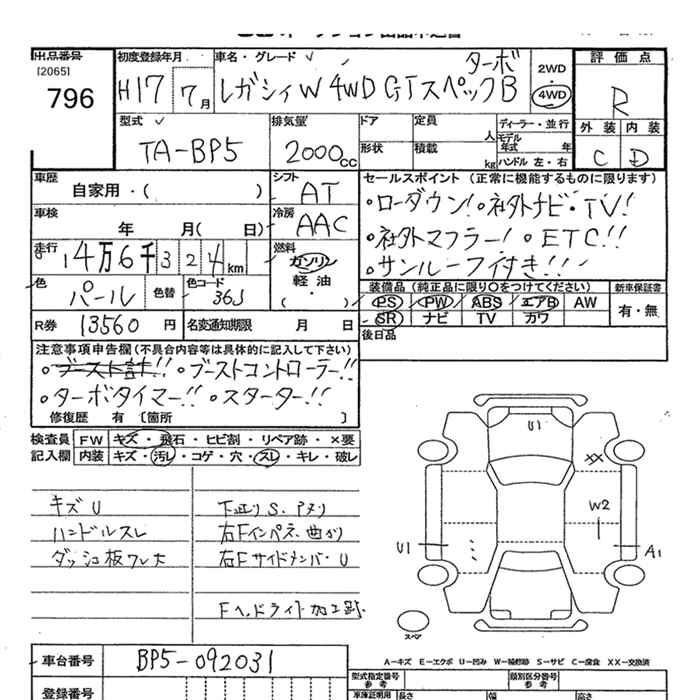 出品番号
[2065]
796
初度登録年月
H17 7月
車名・グレード
レガシィW 4WD GTスペックB ターボ
2WD
4WD
評価点
R
外装 内装
C D
型式
TA-BP5
排気量
2000cc
ドア
形状
定員 人
積載 kg
ディーラー・並行
モデル年式 年
ハンドル 左・右
車歴
自家用・( )
シフト
AT
車検
年 月( 日)
冷房
AAC
走行
14万6千324km
燃料
ガソリン
軽油
・
( )
色
パール
色替
色コード
36J
R券 13560円
名変通知期限 月 日
セールスポイント (正常に機能するものに限ります)
・ローダウン!・社外ナビ・TV!
・社外マフラー!・ETC!!
・サンルーフ付き!!!
装備品 (純正品に限り○をつけてください)
新車保証書
PS PW ABS エアB AW
有・無
SR ナビ TV カワ
後日品
注意事項申告欄 (不具合内容等は具体的に記入して下さい)
・ブースト計!!・ブーストコントローラー!!
・ターボタイマー!!・スターター!!
修復歴 有 〔箇所 〕
検査員 FW キズ・飛石・ヒビ割・リペア跡・×要
記入欄 内装 キズ・汚レ・コゲ・穴・スレ・キレ・破レ
キズU
ハンドルスレ
ダッシュ板ワレ大
下廻りS、アメリ
右Fインパネ曲がり
右FサイドメンバーU
Fヘッドライト加工跡
U1
XX
W2
U1
A1
スペア
A—キズ E—エクボ U—凹み W—補修跡 S—サビ C—腐食 XX—交換済
車台番号 BP5-092031
登録番号
型式指定番号
参考
類別区分番号
参考
車庫証明用
長さ
幅
高さ